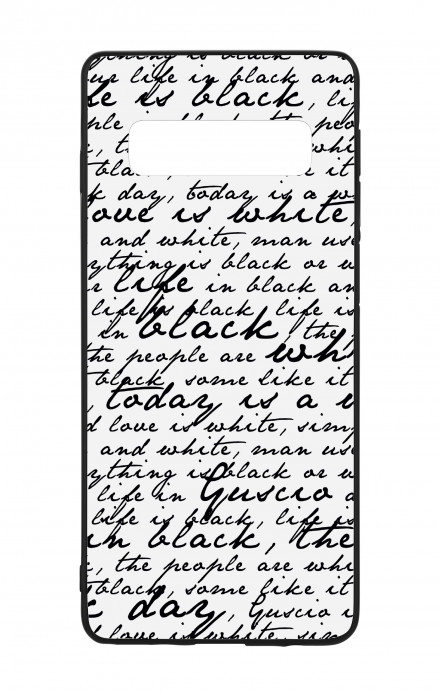 is black or
life in black and
is black, li
ple peo
, t whi
bla it
day, today is a w
love is white,
and white, man us
ything is black or w
r life in black an
life is black, life is
in black, the
the people are wh
black, some like it
, today is a w
d love is white, sim
and white, man us
ything is black or w
life in Guscio a
life is black, life is
in black, the
, the people are whi
black, some like it
day, Guscio i
love is white, sim